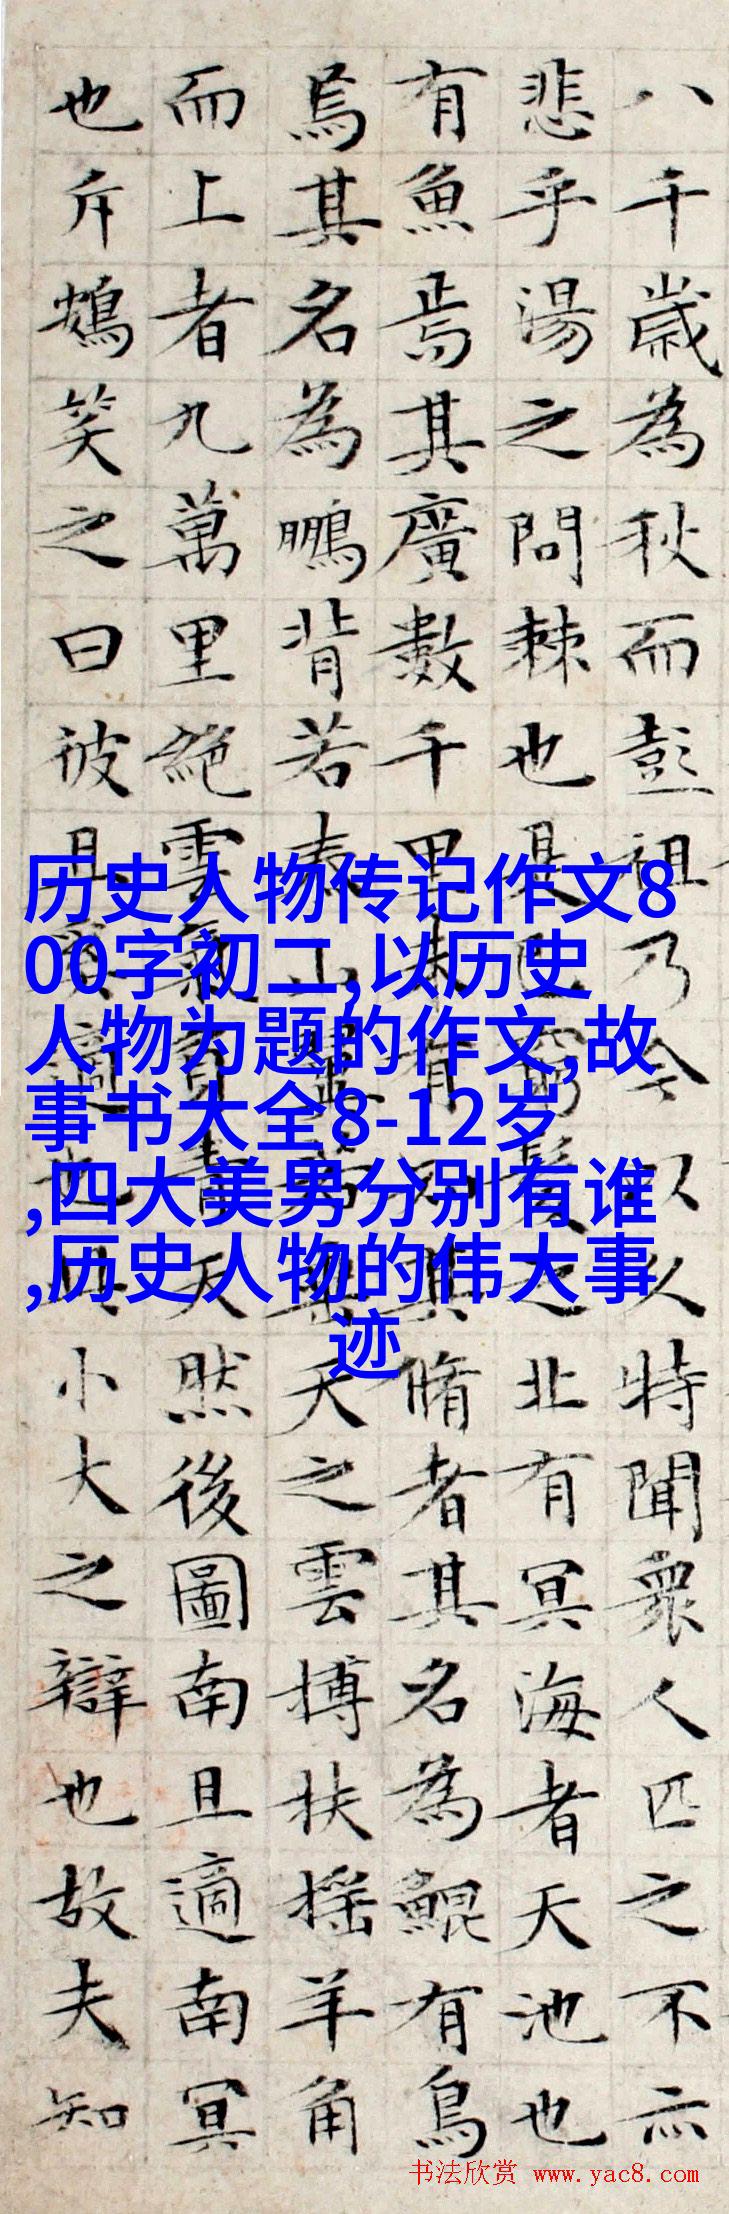 八千歲為秋而彭祖乃今以久特聞衆人匹之不亦
悲乎湯之問棘也是已窮髮之北有冥海者天池也
有魚焉其廣數千里未有知其脩者其名為鯤有鳥
焉其名為鵬背若泰山翼若垂天之雲搏扶搖羊角
而上者九萬里絶雲氣負青天然後圖南且適南冥
也斥鴳笑之曰彼且奚適也此小大之辯也故夫知
历史人物传记作文8
00字初二,以历史
人物为题的作文,故
事书大全8-12岁
,四大美男分别有谁
,历史人物的伟大事
迹
书法欣赏 www.yac8.com